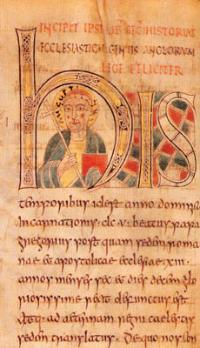 INCIPIT IPSIUS
ECCLESIASTICAE GENTIS ANGLORUM
LEGE FELICITER
HIS
temporibus idest anno dominicae
incarnationis dc v beatus papa
gregorius post quam sedem roma
nae et apostolicae ecclesiae xiii
annos menses sex et dies decem glo
riosissime rexit defunctus est
atque ad aeternam regni caelestis
sedem translatus De quo nos